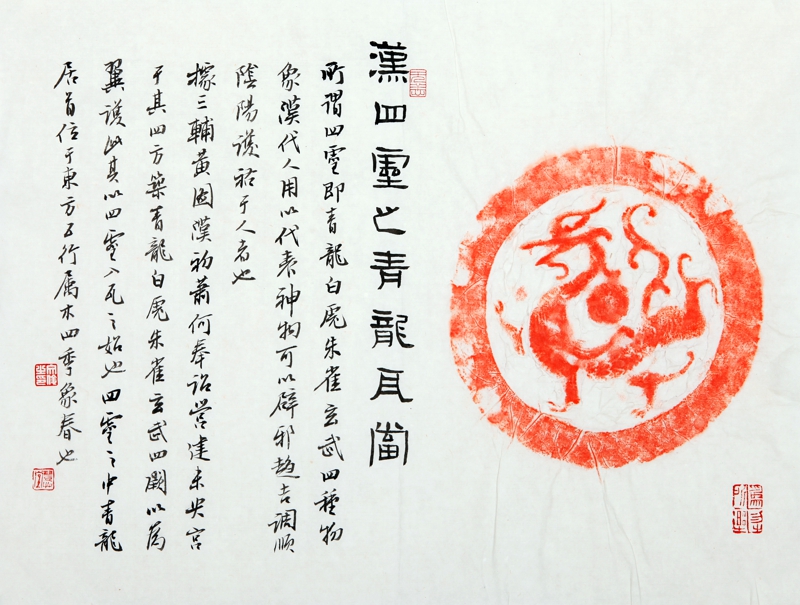 漢四靈之青龍瓦當
所謂四靈即青龍白虎朱雀玄武四種物
象漢代人用以代表神物可以辟邪趨吉調順
陰陽護祐于人者也
據三輔黃圖漢初蕭何奉詔營建未央宮
于其四方築青龍白虎朱雀玄武四闕以爲
翼護此其以四靈入瓦之始也四靈之中青龍
居首位于東方五行属木四季象春也